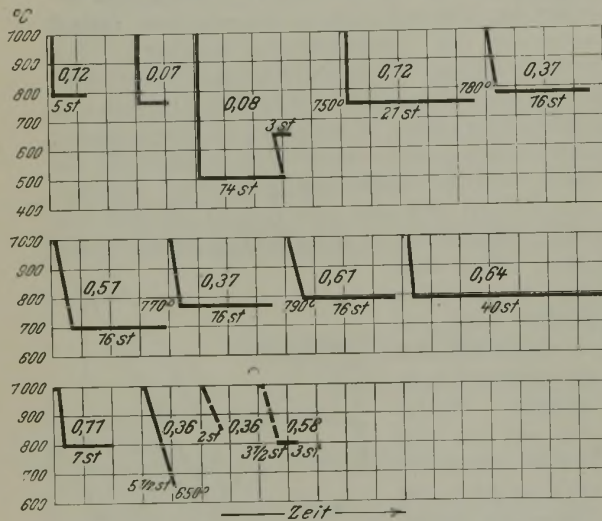 °C
1000
900
800
700
600
500
400
0,12
5 st
0,07
0,08
14 st
3 st
750°
0,12
21 st
780°
0,37
16 st
1000
900
800
700
600
0,51
16 st
770°
0,37
16 st
790°
0,61
16 st
0,64
40 st
1000
900
800
700
600
0,11
7 st
0,36
5 1/2 st
650°
2 st
0,36
3 1/2 st
0,58
3 st
Zeit